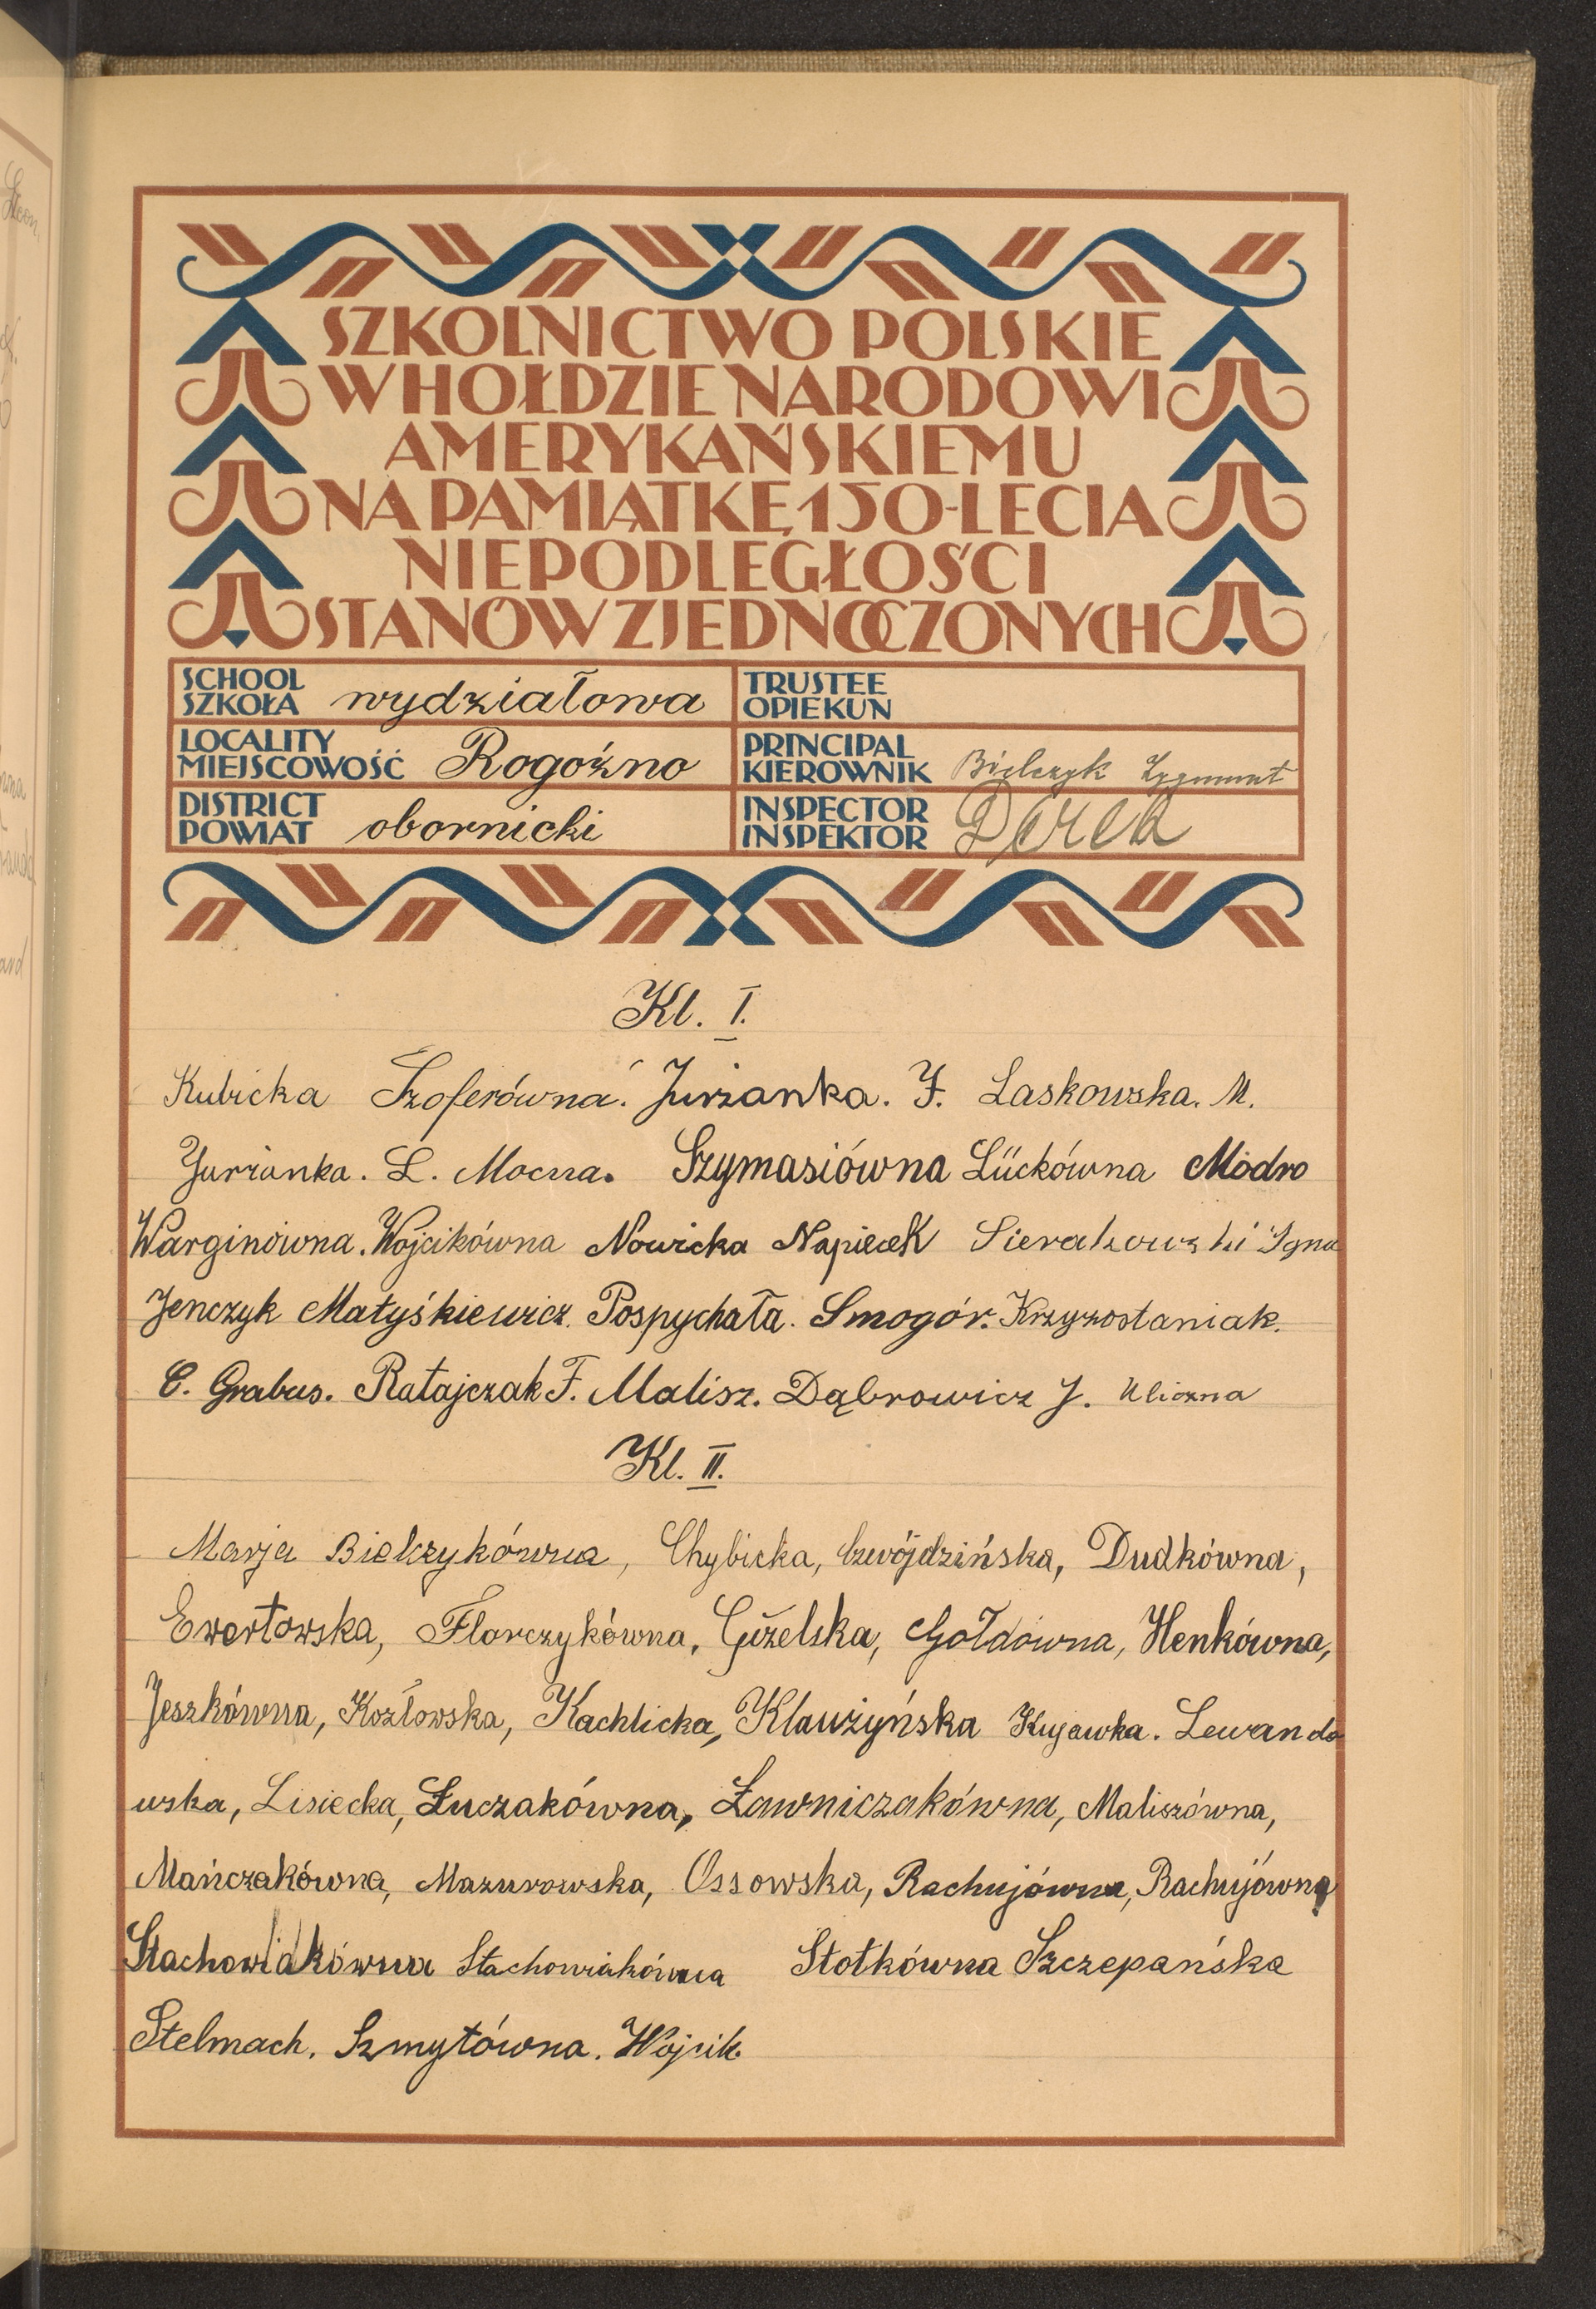 SZKOLNICTWO POLSKIE
W HOŁDZIE NARODOWI
AMERYKAŃSKIEMU
NA PAMIĄTKĘ 150-LECIA
NIEPODLEGŁOŚCI
STANÓW ZJEDNOCZONYCH
SCHOOL
SZKOŁA wydziałowa
TRUSTEE
OPIEKUN
LOCALITY
MIEJSCOWOŚĆ Rogoźno
PRINCIPAL
KIEROWNIK Bielczyk Zygmunt
DISTRICT
POWIAT obornicki
INSPECTOR
INSPEKTOR
Kl. I.
Kubicka Szoferówna. Jurżanka. J. Laskowska. M.
Jurżanka. L. Mocna. Szymasiówna Lückówna Modro
Warginówna. Wójcikówna Nowicka Napiecek Sierakowski Igna
Jenczyk Matyśkiewicz. Pospychała. Smogór. Krzyzostaniak.
C. Grabus. Ratajczak F. Malisz. Dąbrowicz J. Uliczna
Kl. II.
Marja Bielczykówna, Chybicka, Czwójdzińska, Dudkówna,
Ewertowska, Florczykówna, Guzelska, Gołdówna, Henkówna,
Jeszkówna, Kozłowska, Kachlicka, Klauzyńska Kujawka. Lewando
wska, Lisiecka, Łuczakówna, Ławniczakówna, Maliszówna,
Mańczakówna, Mazurowska, Ossowska, Rachujówna, Rachujówna
Stachowiakówna Stachowiakówna Stotkówna Szczepańska
Stelmach. Szmytówna. Wójcik